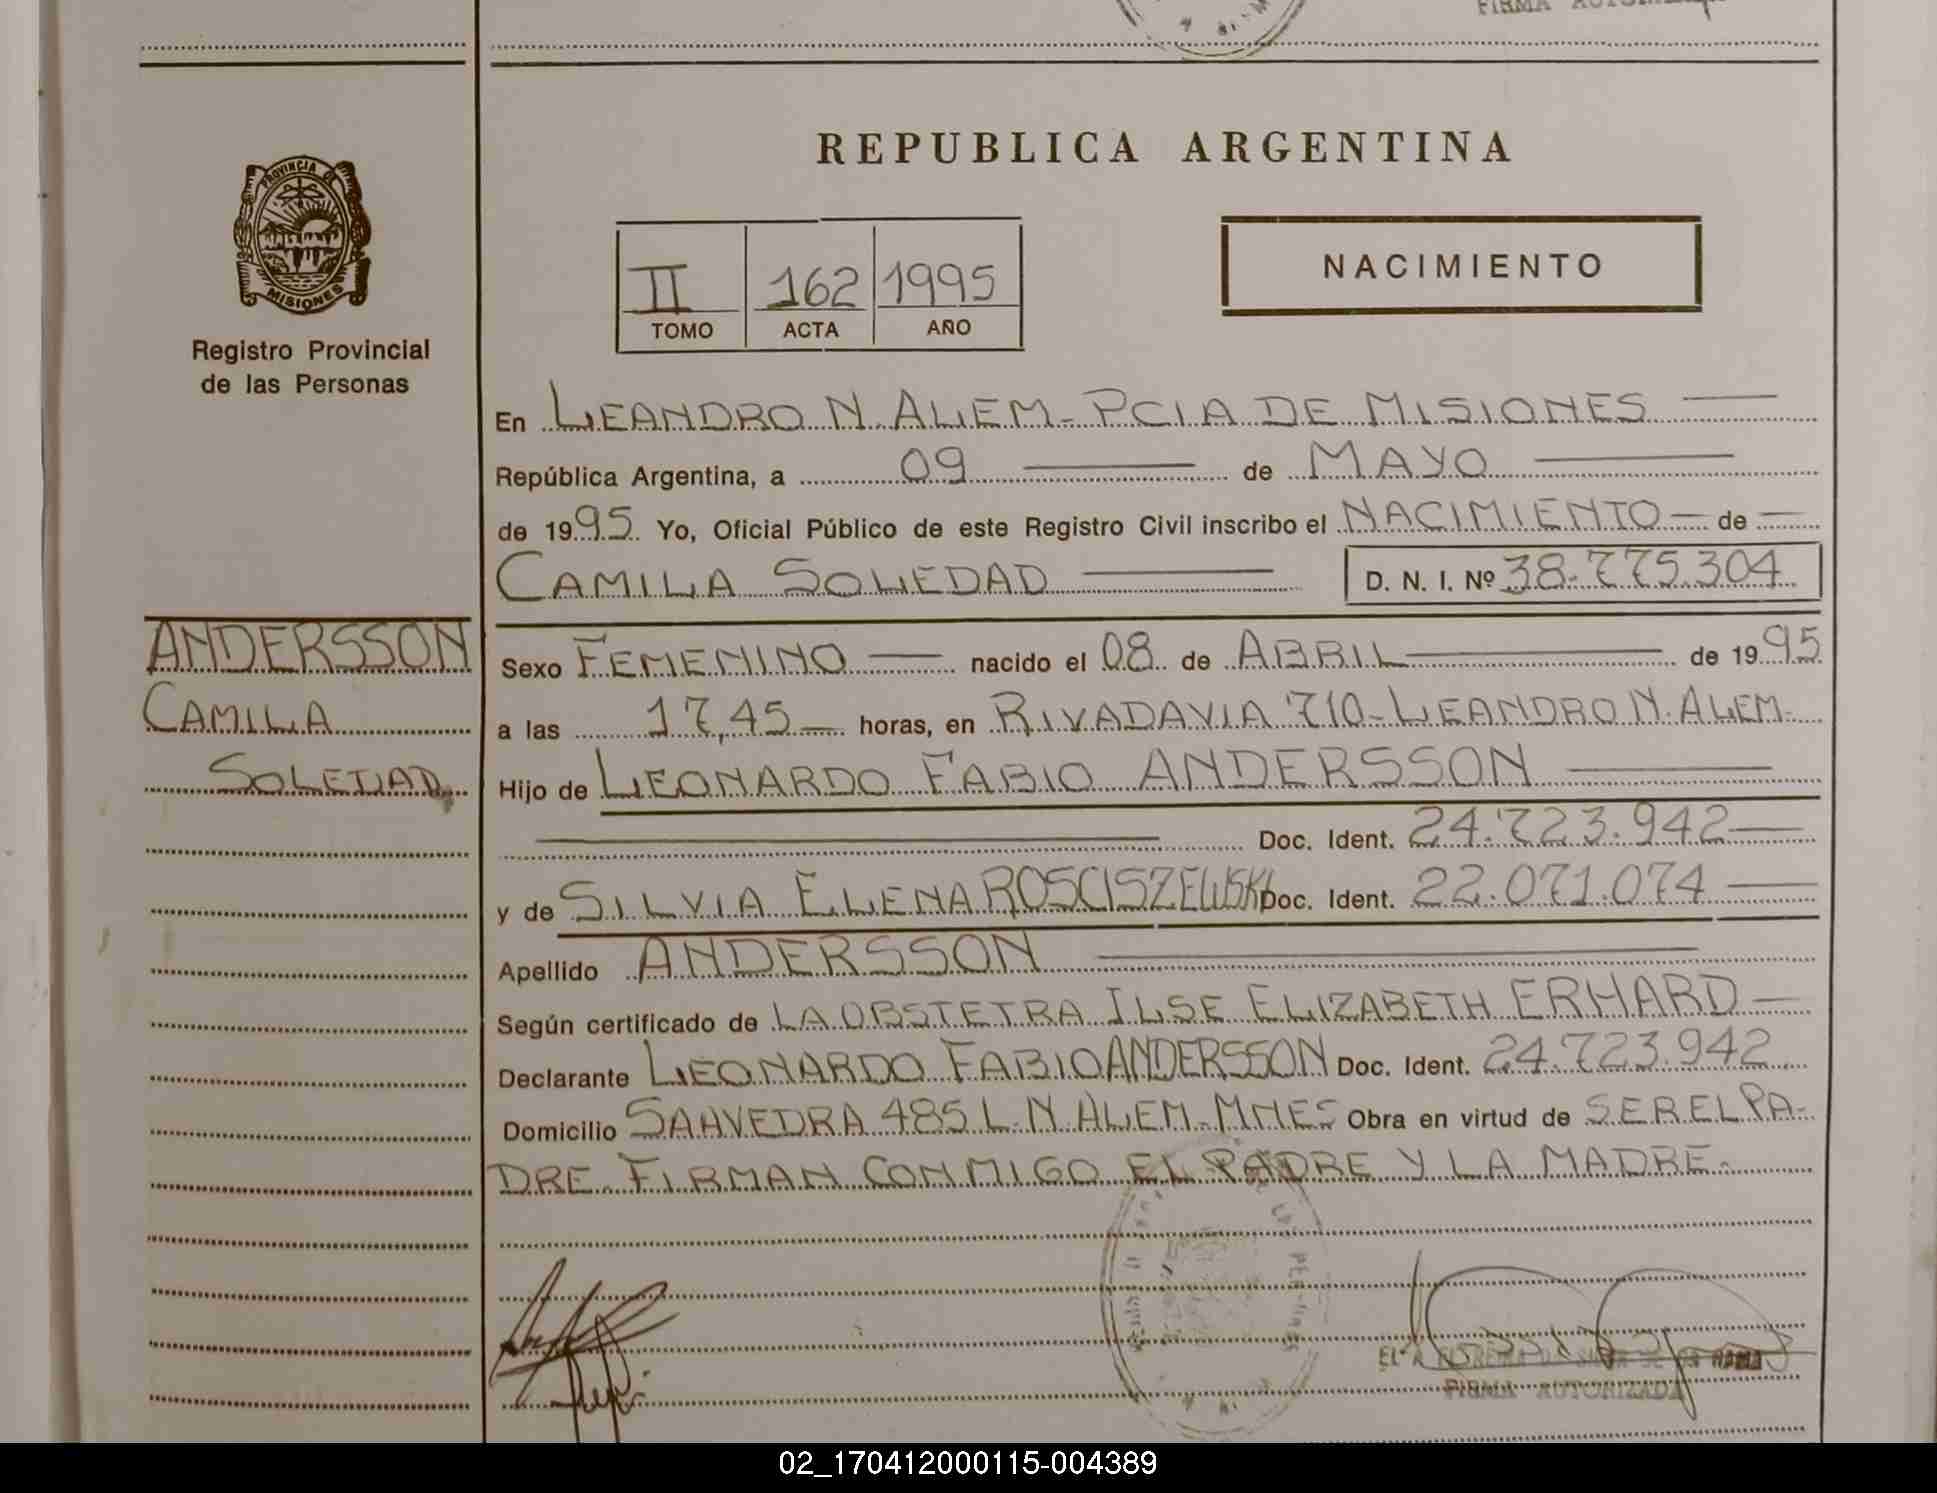 FIRMA
REPUBLICA ARGENTINA
PROVINCIA DE
MISIONES
Registro Provincial
de las Personas
II 162 1995
TOMO ACTA AÑO
NACIMIENTO
En LEANDRO N. ALEM - PCIA DE MISIONES
República Argentina, a 09 de MAYO
de 1995 Yo, Oficial Público de este Registro Civil inscribo el NACIMIENTO de
CAMILA SOLEDAD D. N. I. Nº 38.775.304
ANDERSSON
CAMILA
SOLEDAD
Sexo FEMENINO nacido el 08 de ABRIL de 1995
a las 17,45 horas, en RIVADAVIA 710 - LEANDRO N. ALEM -
Hijo de LEONARDO FABIO ANDERSSON
Doc. Ident. 24.723.942
y de SILVIA ELENA ROSCISZEWSKI Doc. Ident. 22.071.074
Apellido ANDERSSON
Según certificado de LA OBSTETRA ILSE ELIZABETH ERHARD
Declarante LEONARDO FABIO ANDERSSON Doc. Ident. 24.723.942
Domicilio SAAVEDRA 485 L. N. ALEM - MNES Obra en virtud de SER EL PA-
DRE. FIRMAN CONMIGO EL PADRE Y LA MADRE.
FIRMA AUTORIZADA
02_170412000115-004389